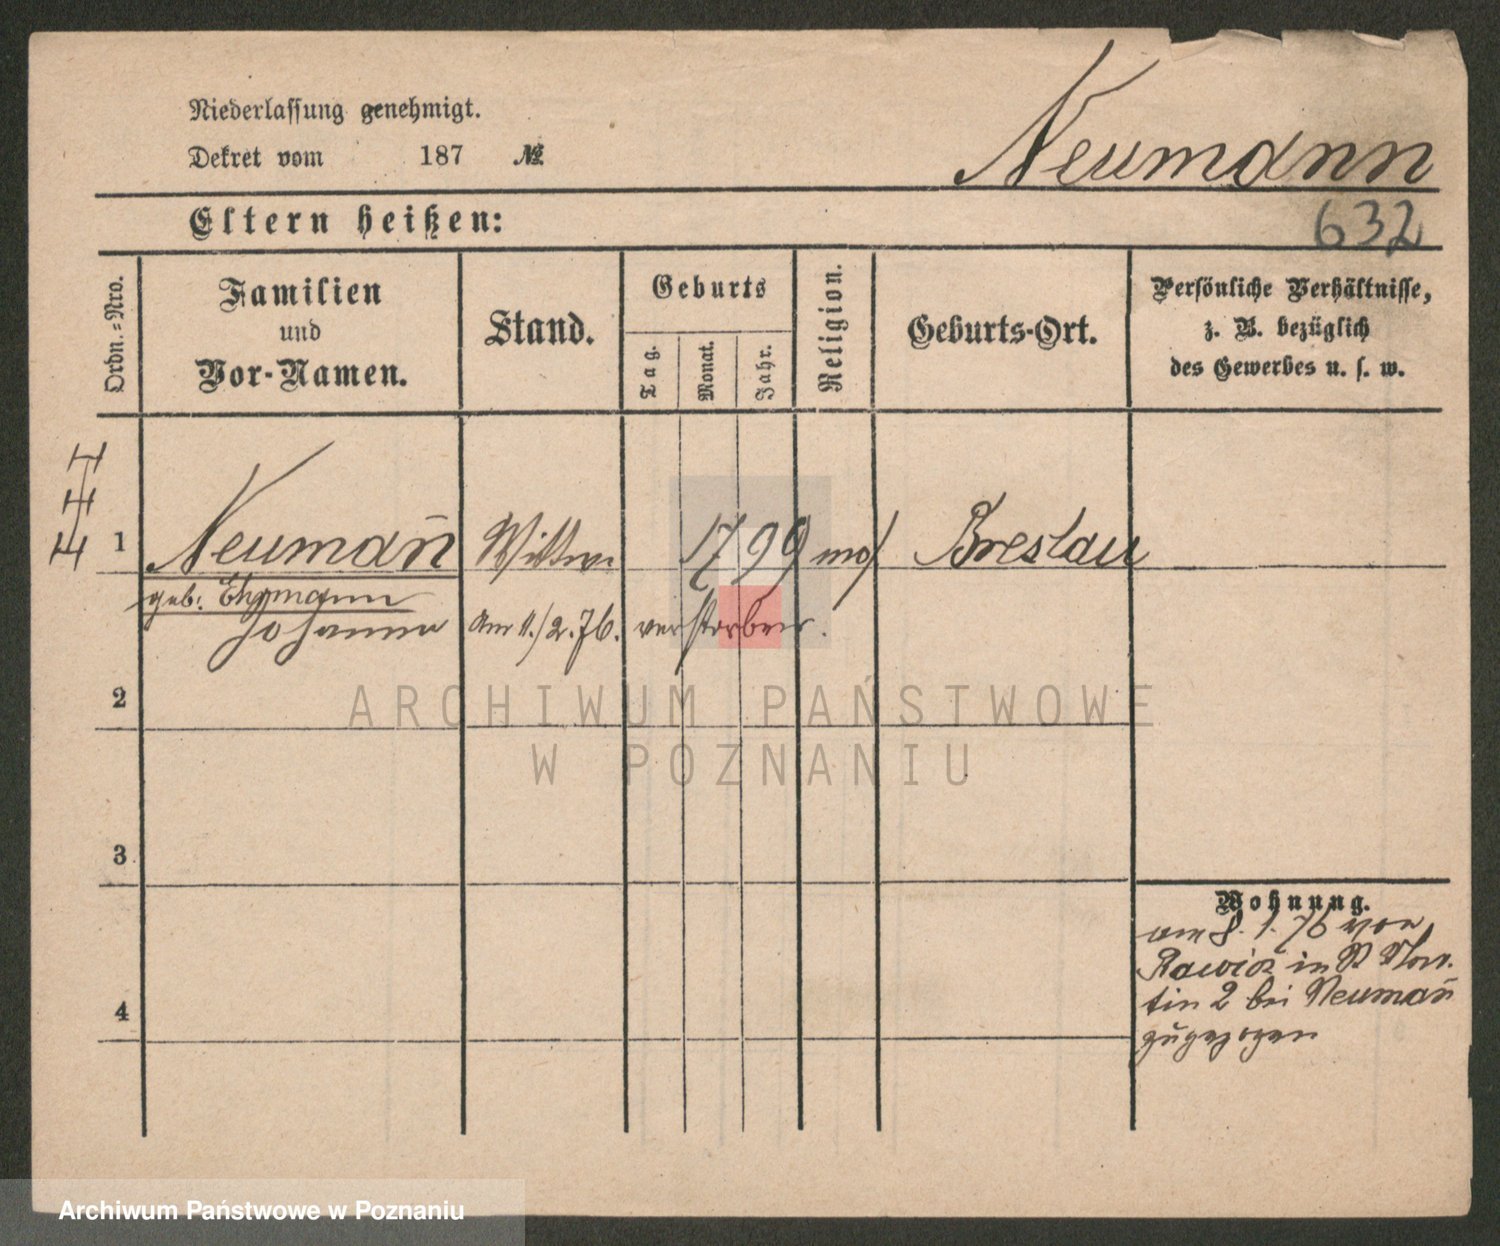 Niederlassung genehmigt.
Dekret vom 187 №
Neumann
Eltern heißen:
632
Ordn.-Nro.
Familien
und
Vor-Namen.
Stand.
Geburts
Tag.
Monat.
Jahr.
Religion.
Geburts-Ort.
Persönliche Verhältnisse,
z. B. bezüglich
des Gewerbes u. s. w.
1 Neuman̄ Wittwe 1799 mos Breslau
geb.
Johanna am 11./2.76. verstorben.
2
3
4
Wohnung.
am 8. 1. 76 von
Rawicz in St Mar-
tin 2 bei Neuman̄
zugezogen
ARCHIWUM PAŃSTWOWE
W POZNANIU
Archiwum Państwowe w Poznaniu